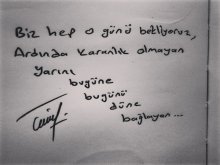 Biz hep o günü bekliyoruz,
Ardında karanlık olmayan
yarını
bugüne
bugünü
düne
bağlayan...